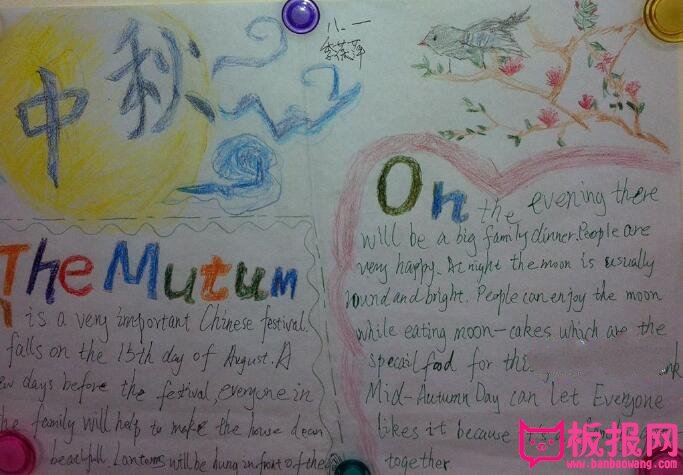 中秋
八.一
The Mutum
is a very important Chinese festival.
falls on the 15th day of August. A
days before the festival, everyone in
the family will help to make the house clean
beautifull. Lanterns will be hung in front of the
On the evening there
will be a big family dinner. People are
very happy. At night the moon is usually
round and bright. People can enjoy the moon
while eating moon-cakes which are the
specail food for this
Mid-Autumn Day can let Everyone
likes it because
together
板报网
www.banbaowang.com